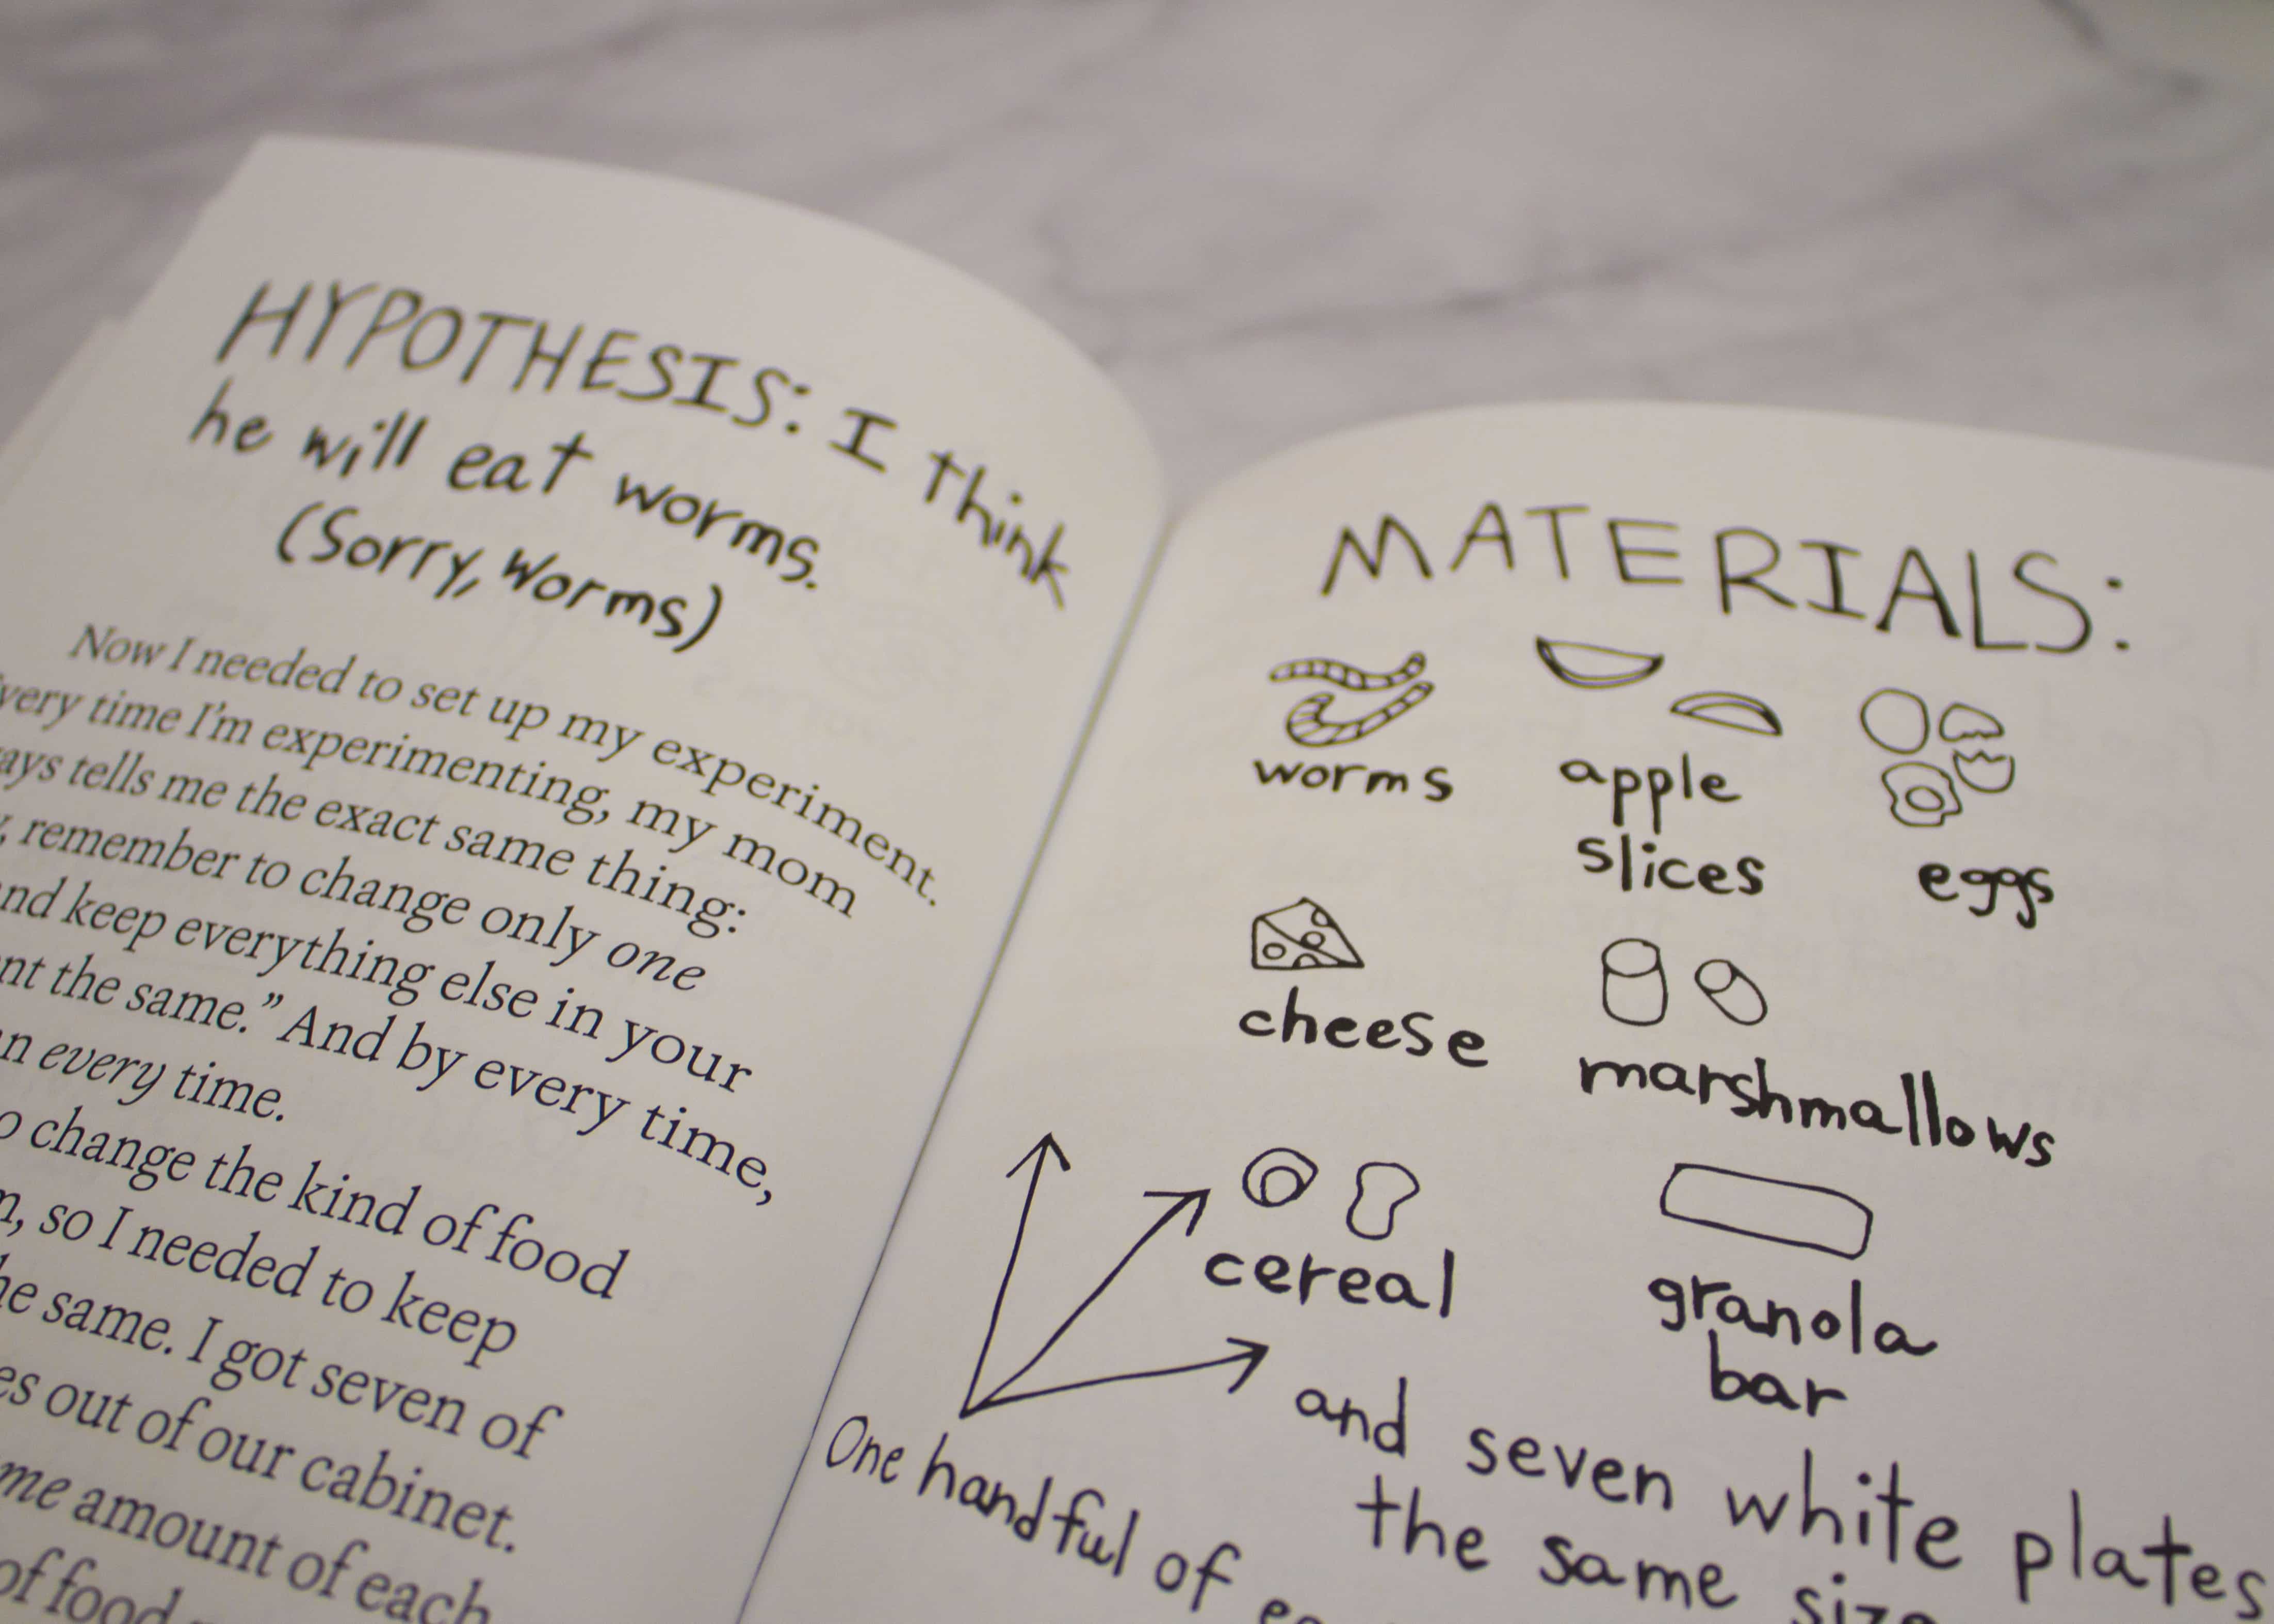 HYPOTHESIS: I think
he will eat worms.
(Sorry, Worms)
Now I needed to set up my experiment.
very time I'm experimenting, my mom
ays tells me the exact same thing:
, remember to change only one
nd keep everything else in your
nt the same.” And by every time,
n every time.
o change the kind of food
, so I needed to keep
he same. I got seven of
es out of our cabinet.
me amount of each
of food
MATERIALS:
worms
apple
slices
eggs
cheese
marshmallows
cereal
granola
bar
One handful of
and seven white plates
the same size